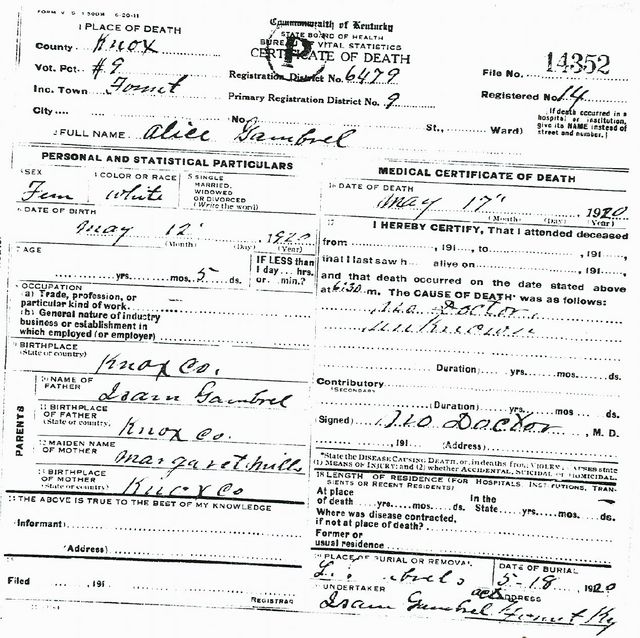 Commonwealth of Kentucky
STATE BOARD OF HEALTH
BUREAU OF VITAL STATISTICS
CERTIFICATE OF DEATH
1 PLACE OF DEATH
County Knox
Vot. Pct. #9
Inc. Town
City
Registration District No. 6479
Primary Registration District No. 9
File No. 14352
Registered No. 14
No. St., Ward)
(If death occurred in a
hospital or institution,
give its NAME instead of
street and number.)
FULL NAME Alice Gambrel
PERSONAL AND STATISTICAL PARTICULARS
SEX
Fem
COLOR OR RACE
White
5 SINGLE
MARRIED,
WIDOWED
OR DIVORCED
(Write the word)
DATE OF BIRTH
May 12 1920
(Month) (Day) (Year)
AGE
yrs. mos. 5 ds.
IF LESS than
1 day hrs.
or min.?
OCCUPATION
a) Trade, profession, or
particular kind of work
(b) General nature of industry
business or establishment in
which employed (or employer)
BIRTHPLACE
(State or country)
Knox Co.
PARENTS
NAME OF
FATHER
Isam Gambrel
BIRTHPLACE
OF FATHER
(State or country)
Knox Co.
MAIDEN NAME
OF MOTHER
Margaret Mills
BIRTHPLACE
OF MOTHER
(State or country)
Knox Co
THE ABOVE IS TRUE TO THE BEST OF MY KNOWLEDGE
Informant)
(Address)
Filed , 191
REGISTRAR
MEDICAL CERTIFICATE OF DEATH
DATE OF DEATH
May 17" 1920
(Month) (Day) (Year)
I HEREBY CERTIFY, That I attended deceased
from , 191 , to , 191 ,
that I last saw h alive on , 191 ,
and that death occurred on the date stated above
at 6:30 m. The CAUSE OF DEATH* was as follows:
No Doctor
unknown
(Duration) yrs. mos. ds.
Contributory
(SECONDARY
(Duration) yrs. mos. ds.
Signed) No Doctor , M. D.
, 191 (Address)
*State the DISEASE CAUSING DEATH, or, in deaths from VIOLENT CAUSES state
(1) MEANS OF INJURY; and (2) whether ACCIDENTAL, SUICIDAL or HOMICIDAL.
18 LENGTH OF RESIDENCE (FOR HOSPITALS, INSTITUTIONS, TRAN-
SIENTS OR RECENT RESIDENTS)
At place In the
of death yrs. mos. ds. State yrs. mos. ds.
Where was disease contracted,
if not at place of death?
Former or
usual residence
PLACE OF BURIAL OR REMOVAL
DATE OF BURIAL
5-18 1920
UNDERTAKER
ADDRESS
Isam Gambrel Ky